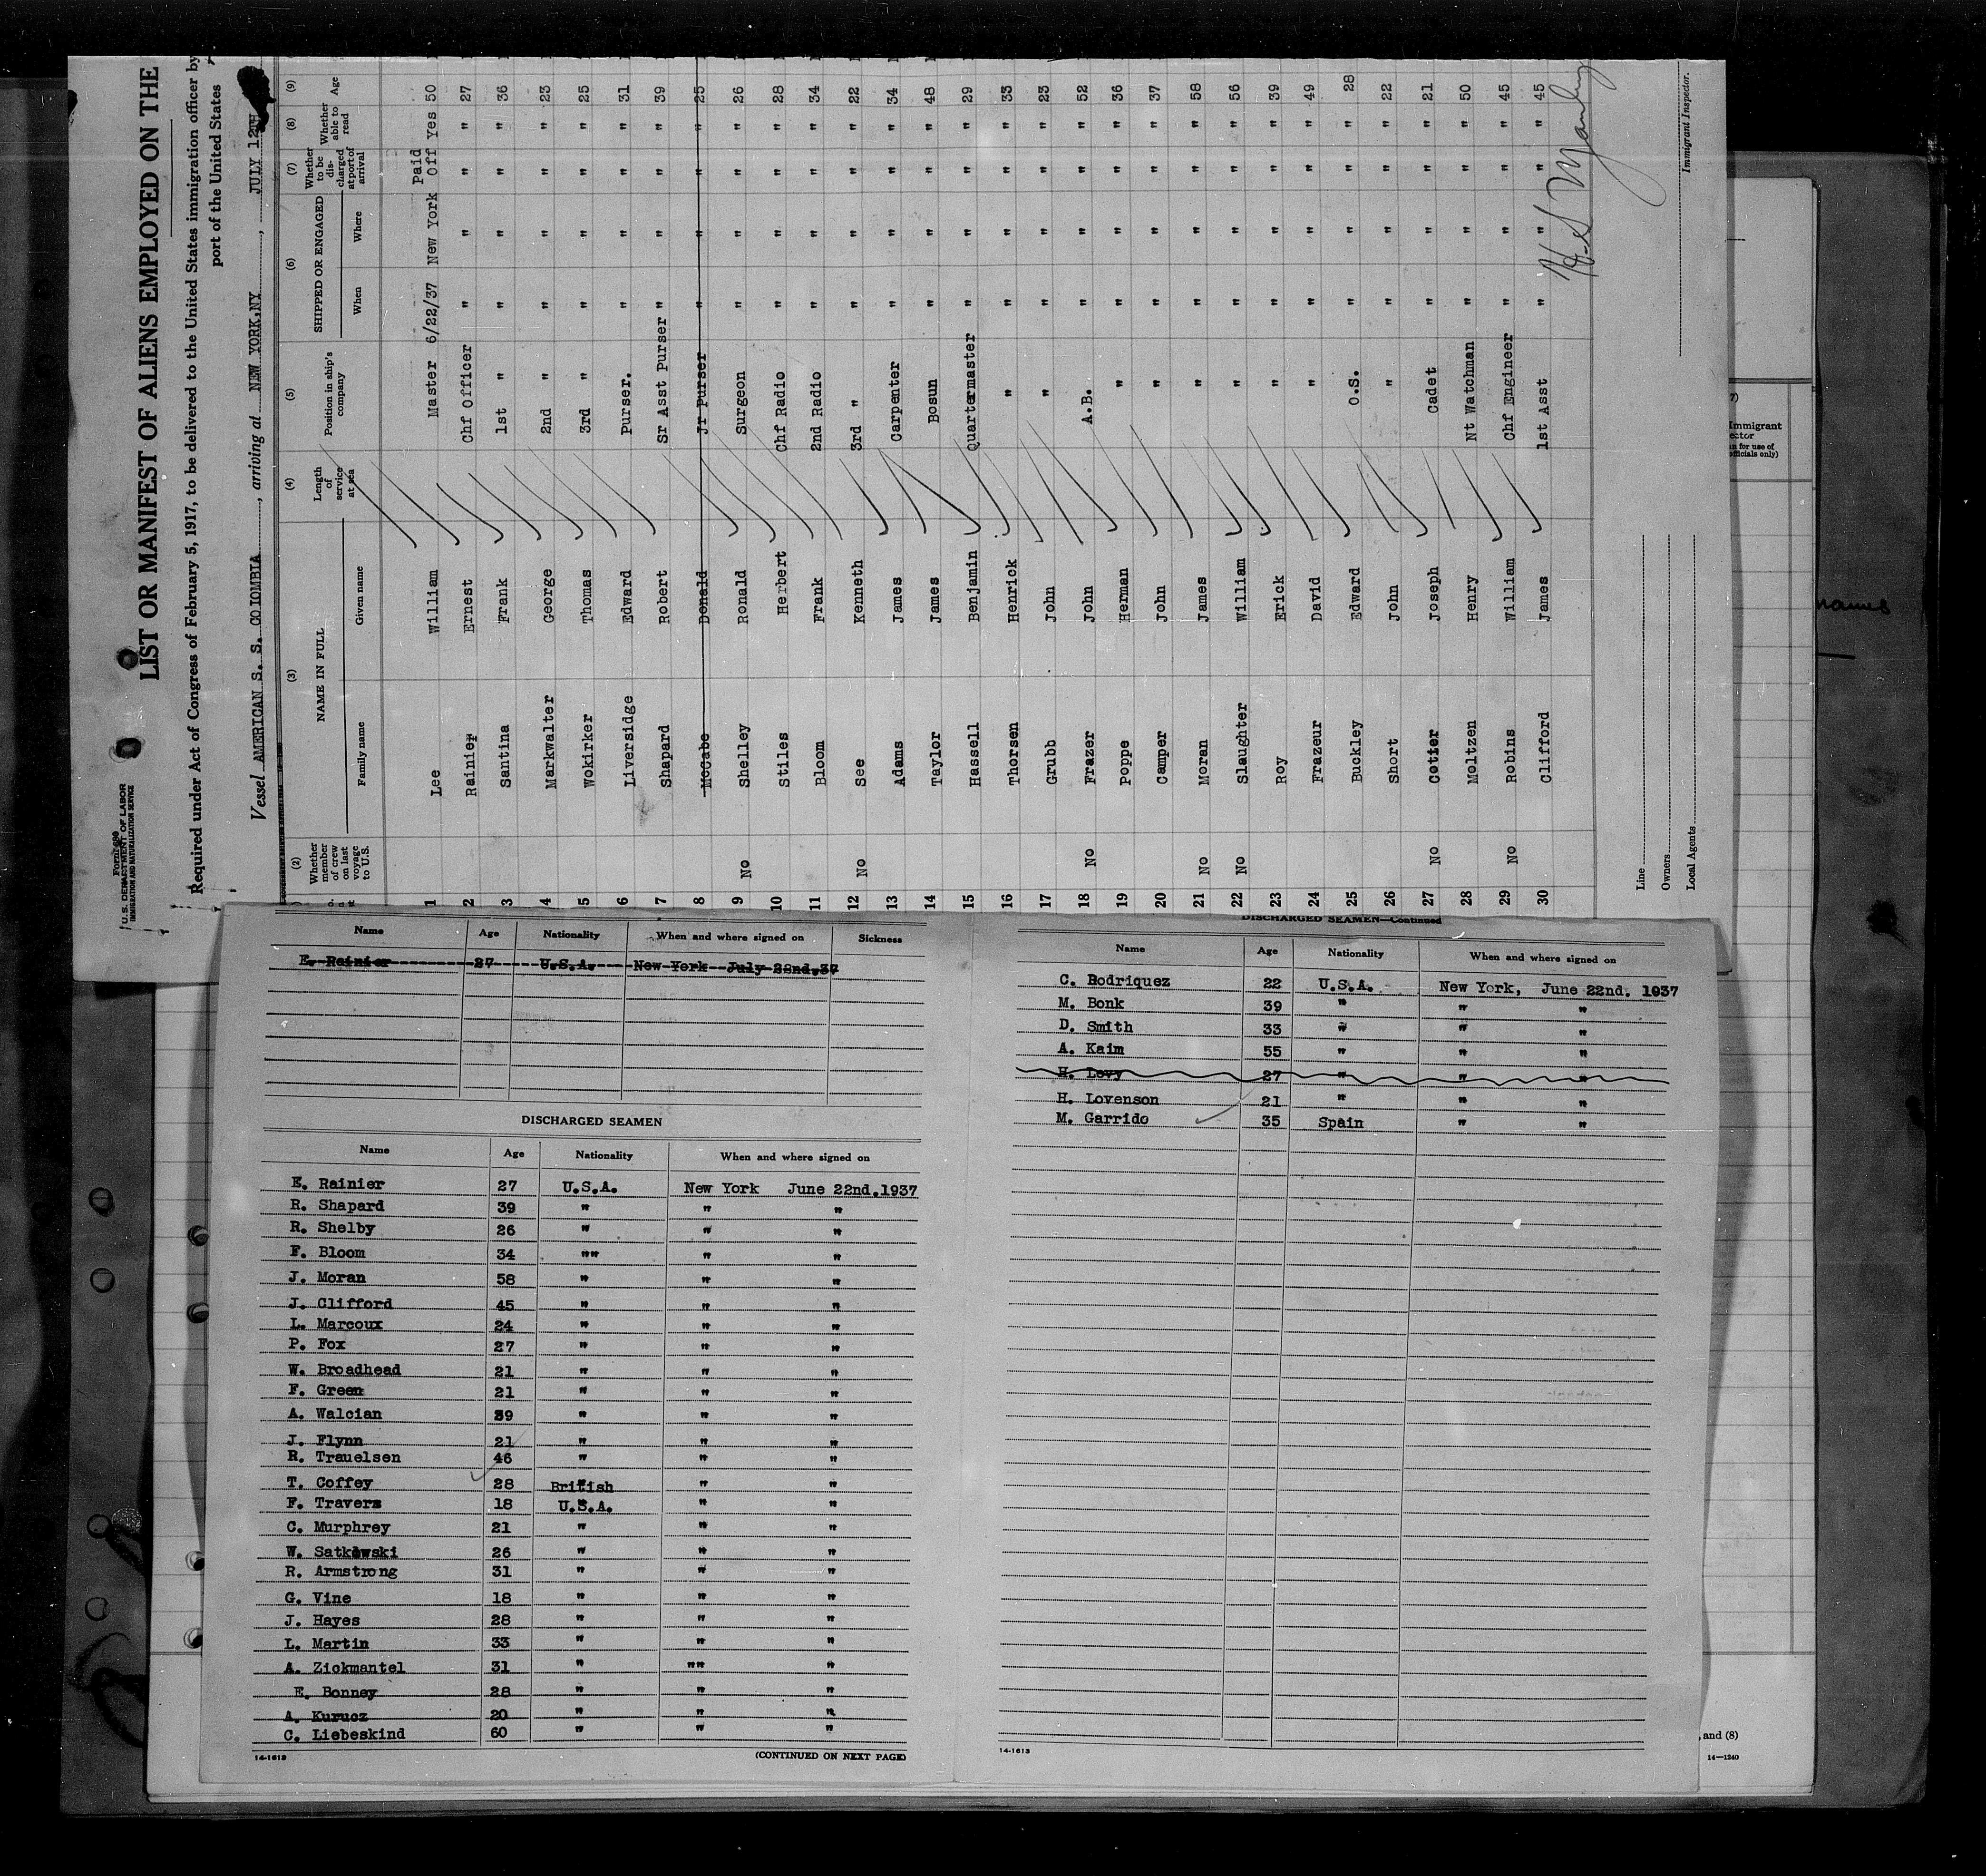 Form 680
U. S. DEPARTMENT OF LABOR
IMMIGRATION AND NATURALIZATION SERVICE
LIST OR MANIFEST OF ALIENS EMPLOYED ON THE
Required under Act of Congress of February 5, 1917, to be delivered to the United States immigration officer by
port of the United States
Vessel AMERICAN S. S. COLOMBIA, arriving at NEW YORK,NY, JULY 12TH
(2) (3) (4) (5) (6) (7) (8) (9)
Whether member of crew on last voyage to U.S. NAME IN FULL Length of service at sea Position in ship's company SHIPPED OR ENGAGED Whether to be discharged at port of arrival Whether able to read Age
Family name Given name When Where
1 Lee William Master 6/22/37 New York Paid Off Yes 50
2 Rainier Ernest Chf Officer " " " " 27
3 Santina Frank 1st " " " " " 36
4 Markwalter George 2nd " " " " " 23
5 Wokirker Thomas 3rd " " " " " 25
6 Liversidge Edward Purser. " " " " 31
7 Shapard Robert Sr Asst Purser " " " " 39
8 McCabe Donald Jr Purser " " " " 25
9 No Shelley Ronald Surgeon " " " " 26
10 Stiles Herbert Chf Radio " " " " 28
11 Bloom Frank 2nd Radio " " " " 34
12 No See Kenneth 3rd " " " " " 22
13 Adams James Carpenter " " " " 34
14 Taylor James Bosun " " " " 48
15 Hassell Benjamin Quartermaster " " " " 29
16 Thorsen Henrick " " " " " 33
17 Grubb John " " " " " 23
18 No Frazer John A.B. " " " " 52
19 Poppe Herman " " " " " 36
20 Camper John " " " " " 37
21 No Moran James " " " " " 58
22 No Slaughter William " " " " " 56
23 Roy Erick " " " " " 39
24 Frazeur David " " " " " 49
25 Buckley Edward O.S. " " " " 28
26 Short John " " " " " 22
27 No Cotter Joseph Cadet " " " " 21
28 Moltzen Henry Nt Watchman " " " " 50
29 No Robins William Chf Engineer " " " " 45
30 Clifford James 1st Asst " " " " 45
Line
Owners
Local Agents
Immigrant Inspector.
Name Age Nationality When and where signed on Sickness
E. Rainier 27 U.S.A. New York July 22nd,37
DISCHARGED SEAMEN
Name Age Nationality When and where signed on
E. Rainier 27 U.S.A. New York June 22nd.1937
R. Shapard 39 " " "
R. Shelby 26 " " "
F. Bloom 34 "" " "
J. Moran 58 " " "
J. Clifford 45 " " "
L. Marcoux 24 " " "
P. Fox 27 " " "
W. Broadhead 21 " " "
F. Green 21 " " "
A. Walcian 39 " " "
J. Flynn 21 " " "
R. Trauelsen 46 " " "
T. Coffey 28 British " "
F. Travers 18 U.S.A. " "
C. Murphrey 21 " " "
W. Satkowski 26 " " "
R. Armstrong 31 " " "
G. Vine 18 " " "
J. Hayes 28 " " "
L. Martin 33 " " "
A. Zickmantel 31 " "" "
E. Bonney 28 " " "
A. Kurucz 20 " " "
C. Liebeskind 60 " " "
14-1613 (CONTINUED ON NEXT PAGE)
DISCHARGED SEAMEN—Continued
Name Age Nationality When and where signed on
C. Rodriquez 22 U.S.A. New York, June 22nd. 1937
M. Bonk 39 " " "
D. Smith 33 " " "
A. Kaim 55 " " "
H. Levy 27 " " "
H. Lovenson 21 " " "
M. Garrido 35 Spain " "
14-1613
Immigrant
for use of
officials only)
names
, and (8)
14—1240